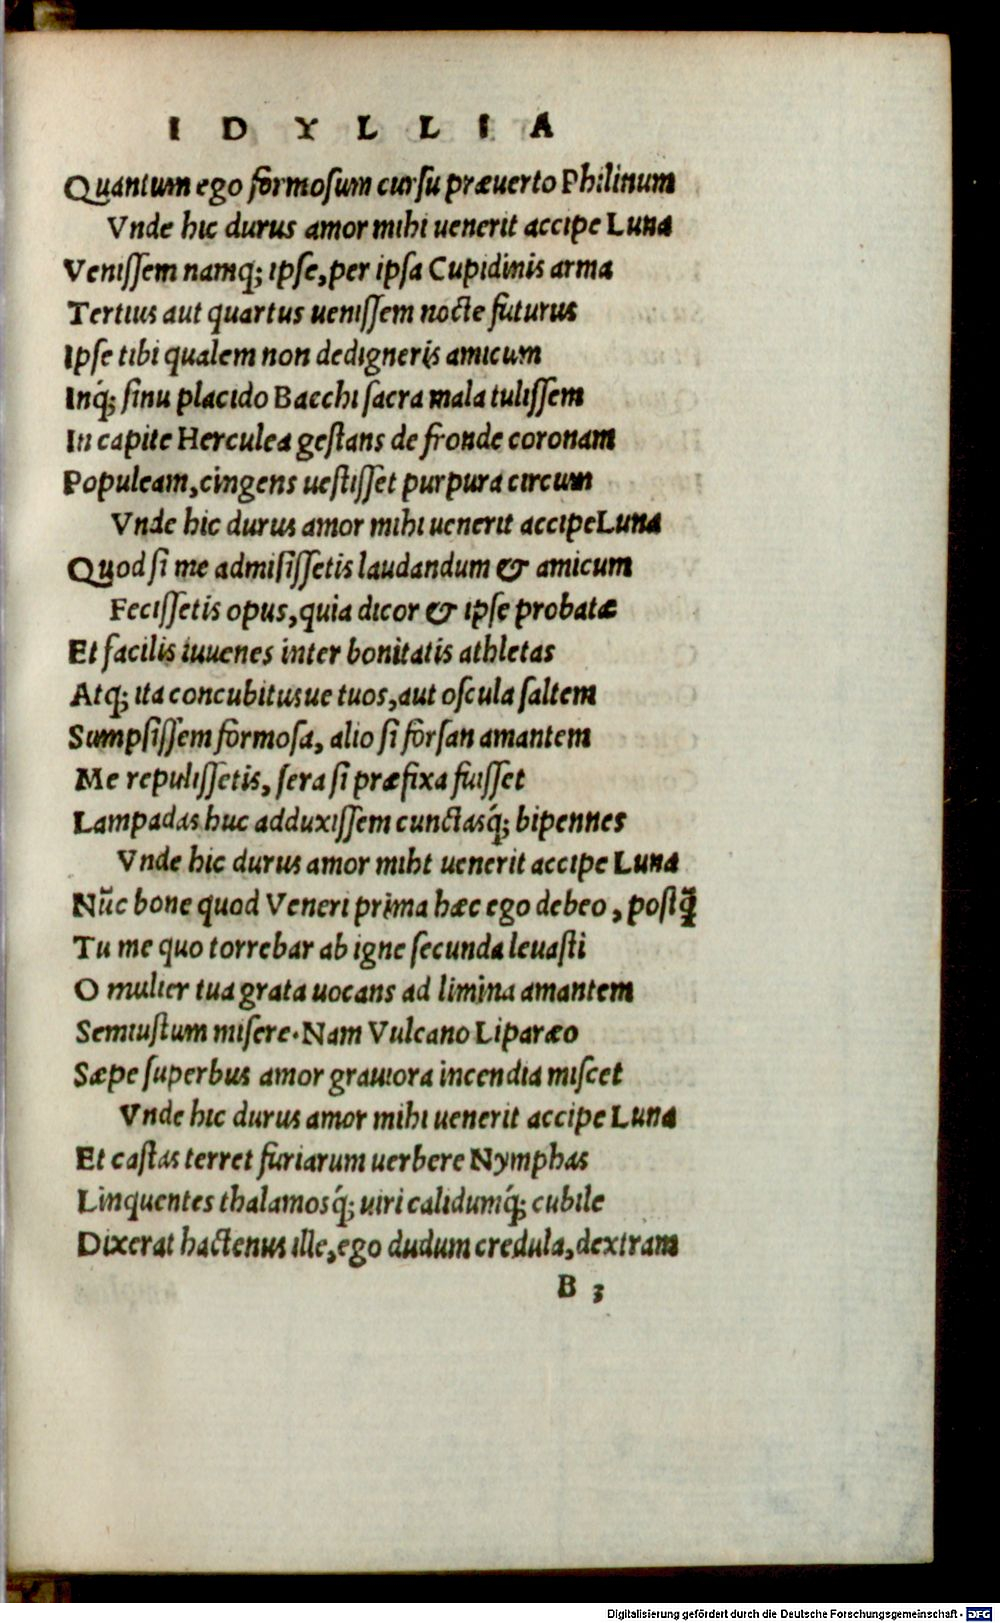 I D Y L L I A
Quantum ego formosum cursu præuerto Philinum
Vnde hic durus amor mihi uenerit accipe Luna
Venissem namq; ipse, per ipsa Cupidinis arma
Tertius aut quartus uenissem nocte futurus
Ipse tibi qualem non dedigneris amicum
Inq́; sinu placido Bacchi sacra mala tulissem
In capite Herculea gestans de fronde coronam
Populeam, cingens uestisset purpura circum
Vnde hic durus amor mihi uenerit accipe Luna
Quod si me admisissetis laudandum & amicum
Fecissetis opus, quia dicor & ipse probatæ
Et facilis iuuenes inter bonitatis athletas
Atq; ita concubitusue tuos, aut oscula saltem
Sumpsissem formosa, alio si forsan amantem
Me repulissetis, sera si præfixa fuisset
Lampadas huc adduxissem cunctasq́; bipennes
Vnde hic durus amor miht uenerit accipe Luna
Nũc bone quod Veneri prima hæc ego debeo, postq̃
Tu me quo torrebar ab igne secunda leuasti
O mulier tua grata uocans ad limina amantem
Semiustum misere. Nam Vulcano Liparæo
Sæpe superbus amor grauiora incendia miscet
Vnde hic durus amor mihi uenerit accipe Luna
Et castas terret furiarum uerbere Nymphas
Linquentes thalamosq́; uiri calidumq́; cubile
Dixerat hactenus ille, ego dudum credula, dextram
B 3
Digitalisierung gefördert durch die Deutsche Forschungsgemeinschaft - DFG